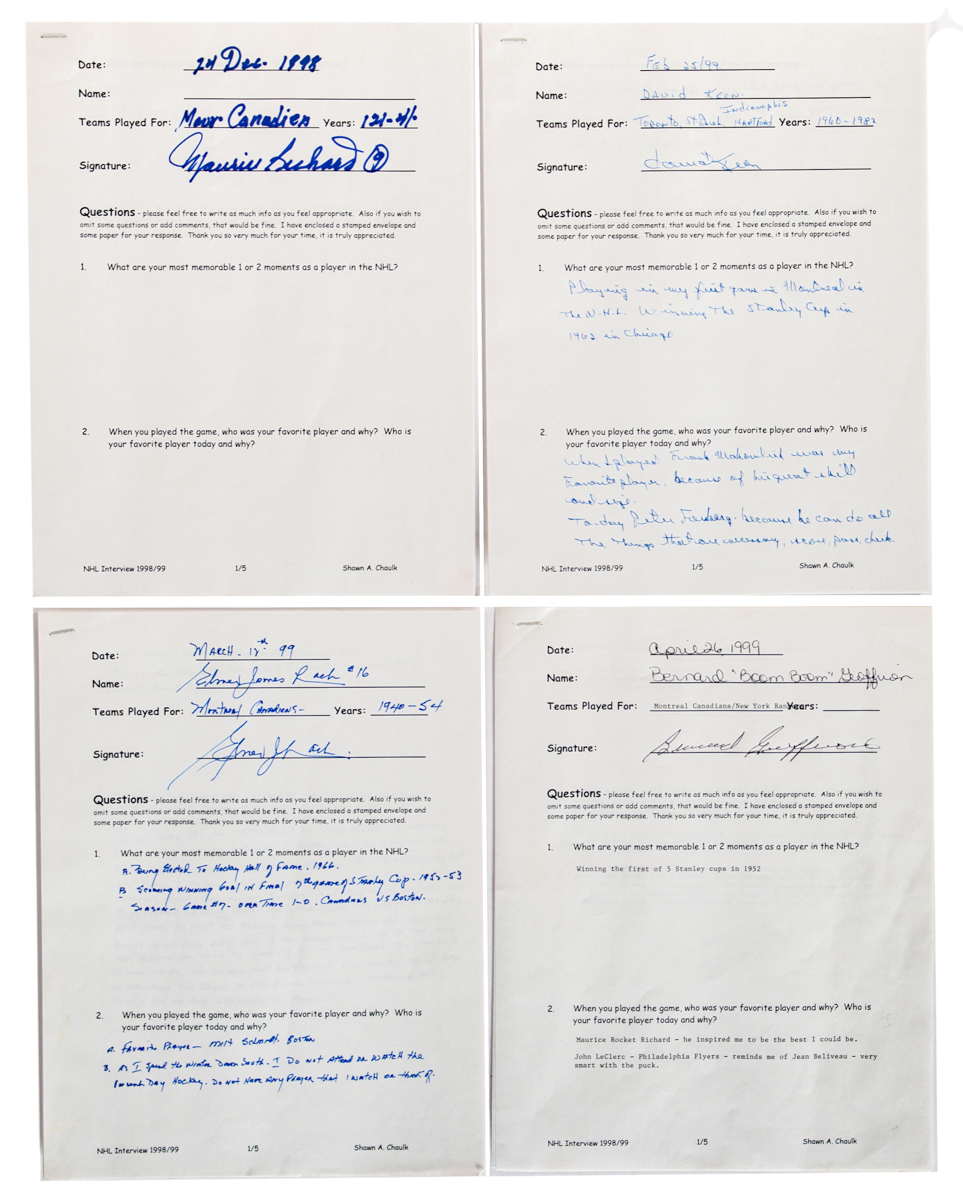 Date: 24 Dec. 1998
Name:
Teams Played For: Canadien Years:
Signature: Maurice Richard 9
Questions - please feel free to write as much info as you feel appropriate. Also if you wish to
omit some questions or add comments, that would be fine. I have enclosed a stamped envelope and
some paper for your response. Thank you so very much for your time, it is truly appreciated.
1. What are your most memorable 1 or 2 moments as a player in the NHL?
2. When you played the game, who was your favorite player and why? Who is
your favorite player today and why?
NHL Interview 1998/99 1/5 Shawn A. Chaulk
Date: Feb 25/99
Name: David Keon
Indianapolis
Teams Played For: Toronto, St Paul Hartford Years: 1960-1982
Signature: David Keon
Questions - please feel free to write as much info as you feel appropriate. Also if you wish to
omit some questions or add comments, that would be fine. I have enclosed a stamped envelope and
some paper for your response. Thank you so very much for your time, it is truly appreciated.
1. What are your most memorable 1 or 2 moments as a player in the NHL?
Playing in my first game in Montreal in
The N.H.L. Winning The Stanley Cup in
1962 in Chicago
2. When you played the game, who was your favorite player and why? Who is
your favorite player today and why?
When I played Frank Mahovlich was my
Favorite player, because of his great skill
and size.
Today Peter Forsberg. because he can do all
The Things that are necessary, score, pass, check
NHL Interview 1998/99 1/5 Shawn A. Chaulk
Date: March. 12th 99
Name: Elmer James Lach #16
Teams Played For: Montreal Canadiens- Years: 1940-54
Signature: Elmer J Lach.
Questions - please feel free to write as much info as you feel appropriate. Also if you wish to
omit some questions or add comments, that would be fine. I have enclosed a stamped envelope and
some paper for your response. Thank you so very much for your time, it is truly appreciated.
1. What are your most memorable 1 or 2 moments as a player in the NHL?
A. Being Elected To Hockey Hall of Fame. 1966.
B Scoring winning Goal in Final 7th game of Stanley Cup. 1952-53
Season- Game #7- over Time 1-0. Canadiens vs Boston.
2. When you played the game, who was your favorite player and why? Who is
your favorite player today and why?
A. Favorite Player- Milt Schmidt. Boston
B. As I spend the winter Down South. I Do not Attend or watch the
Present Day Hockey. Do not Have Any Player that I watch or think of.
NHL Interview 1998/99 1/5 Shawn A. Chaulk
Date: April 26, 1999
Name: Bernard "Boom Boom" Geoffrion
Teams Played For: Montreal Canadians/New York Years:
Signature: Bernard Geoffrion
Questions - please feel free to write as much info as you feel appropriate. Also if you wish to
omit some questions or add comments, that would be fine. I have enclosed a stamped envelope and
some paper for your response. Thank you so very much for your time, it is truly appreciated.
1. What are your most memorable 1 or 2 moments as a player in the NHL?
Winning the first of 5 Stanley cups in 1952
2. When you played the game, who was your favorite player and why? Who is
your favorite player today and why?
Maurice Rocket Richard - he inspired me to be the best I could be.
John LeClerc - Philadelphia Flyers - reminds me of Jean Beliveau - very
smart with the puck.
NHL Interview 1998/99 1/5 Shawn A. Chaulk